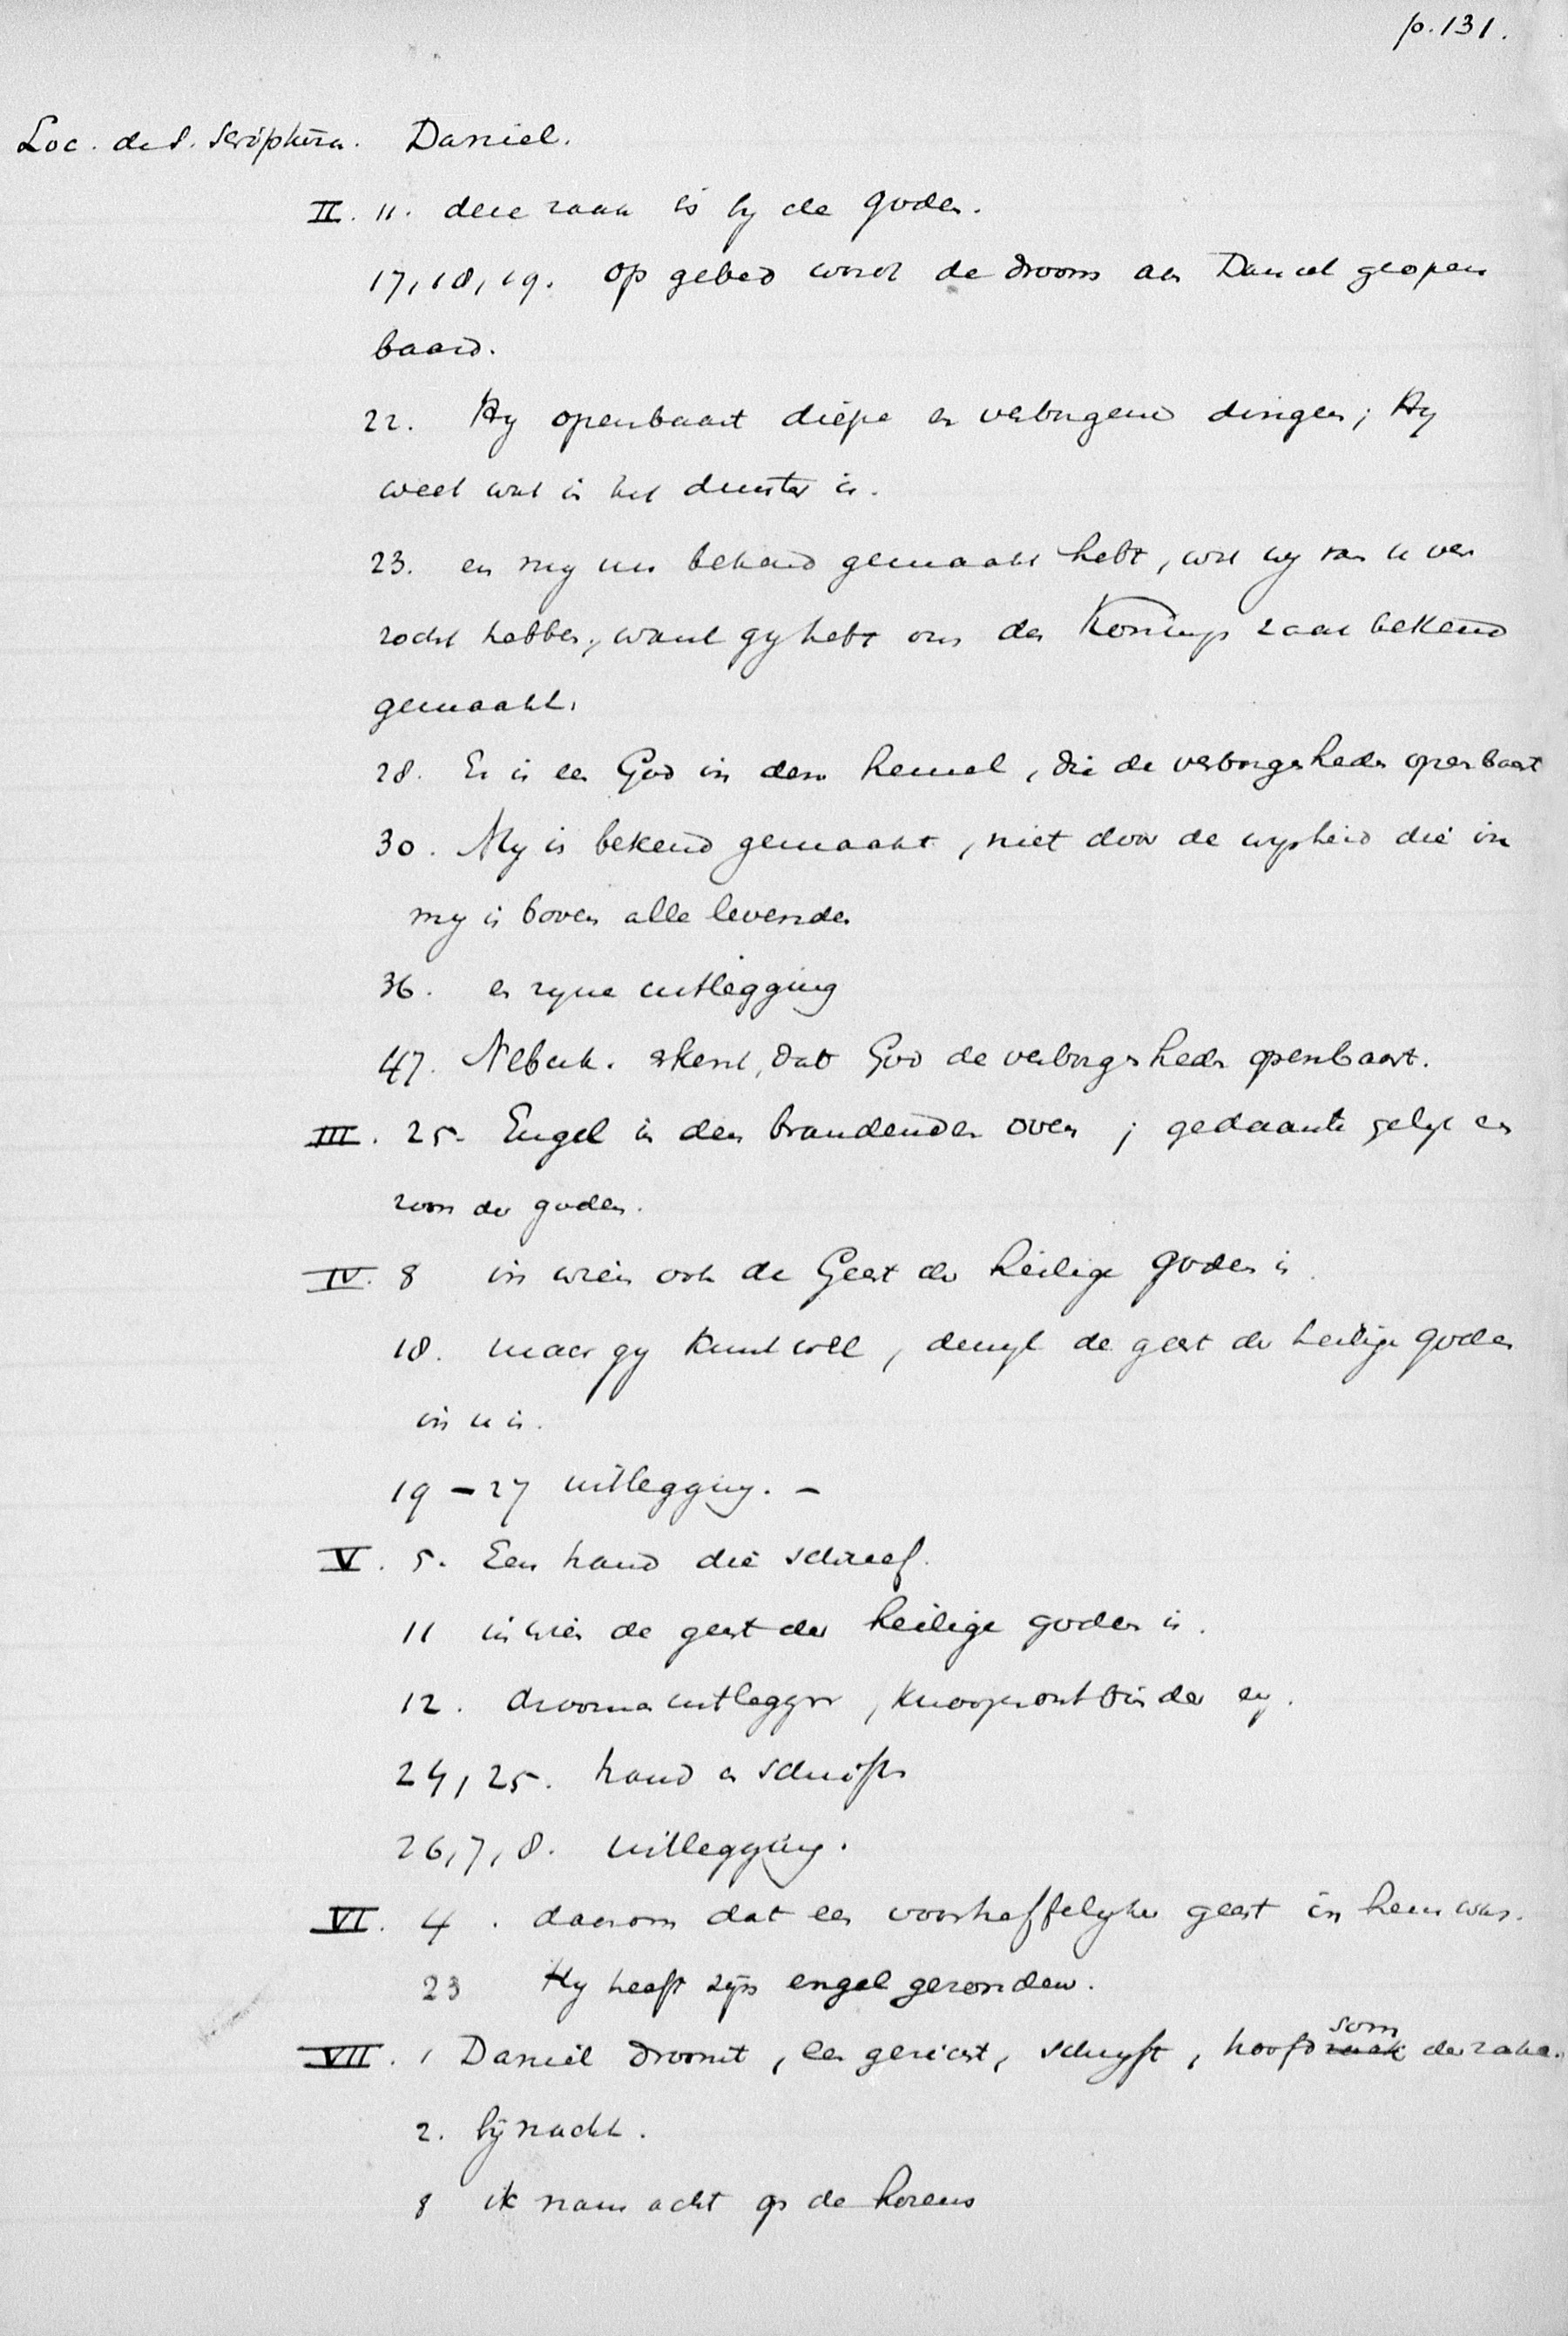 p. 131.
Loc. de S. Scriptura. Daniel.
II. 11. deze zaak is by de goden.
17, 18, 19. op gebed wordt de droom aan Daniel geopen
baard.
22. Hy openbaart diepe en verborgene dingen; Hy
weet wat in het duister is.
23. en my nu bekend gemaakt hebt, wat wy van u ver
zocht hebben, want gy hebt ons des Konings zaak bekend
gemaakt.
28. Er is een God in den hemel, die de verborgenheden openbaart
30. My is bekend gemaakt, niet door de wysheid die in
my is boven alle levenden
36. en zyne uitlegging
47. Nebuk. erkent, dat God de verborgenheden openbaart.
III. 25. Engel in den brandenden oven; gedaante gelyk een
zoon der goden.
IV. 8 in wien ook de Geest der heilige goden is
18. maar gy kunt wel, dewyl de geest der heilige goden
in u is.
19 – 27 uitlegging. –
V. 5. Een hand die schreef.
11 in wien de geest der heilige goden is.
12. droomen uitlegger, knoopen ontbinder
24, 25. hand en schrift
26, 7, 8. uitlegging.
VI. 4. daarom dat een voortreffelyke geest in hem was.
23 Hy heeft zijn engel gezonden.
VII. 1 Daniel droomt, een gezicht, schryft, hoofd zaak som der zaken.
2. bij nacht.
8 ik nam acht op de horens